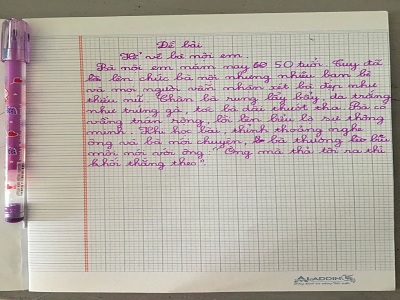 Đề bài
Kể về bà nội em.
Bà nội em năm nay 50 tuổi. Tuy đã
lên chức bà nội nhưng nhiều bạn bè
và mọi người vẫn nhận xét bà đẹp như
thiếu nữ. Chân bà rung lẩy bẩy, da trắng
như trứng gà, tóc bà dài thướt tha. Bà có
vầng trán rộng, lồi lên biểu lộ sự thông
minh. Khi học bài, thỉnh thoảng nghe
ông và bà nói chuyện, bà thường bĩu
môi nói với ông "Ông mà thả tôi ra thì
khối thằng theo".
ALADDIN